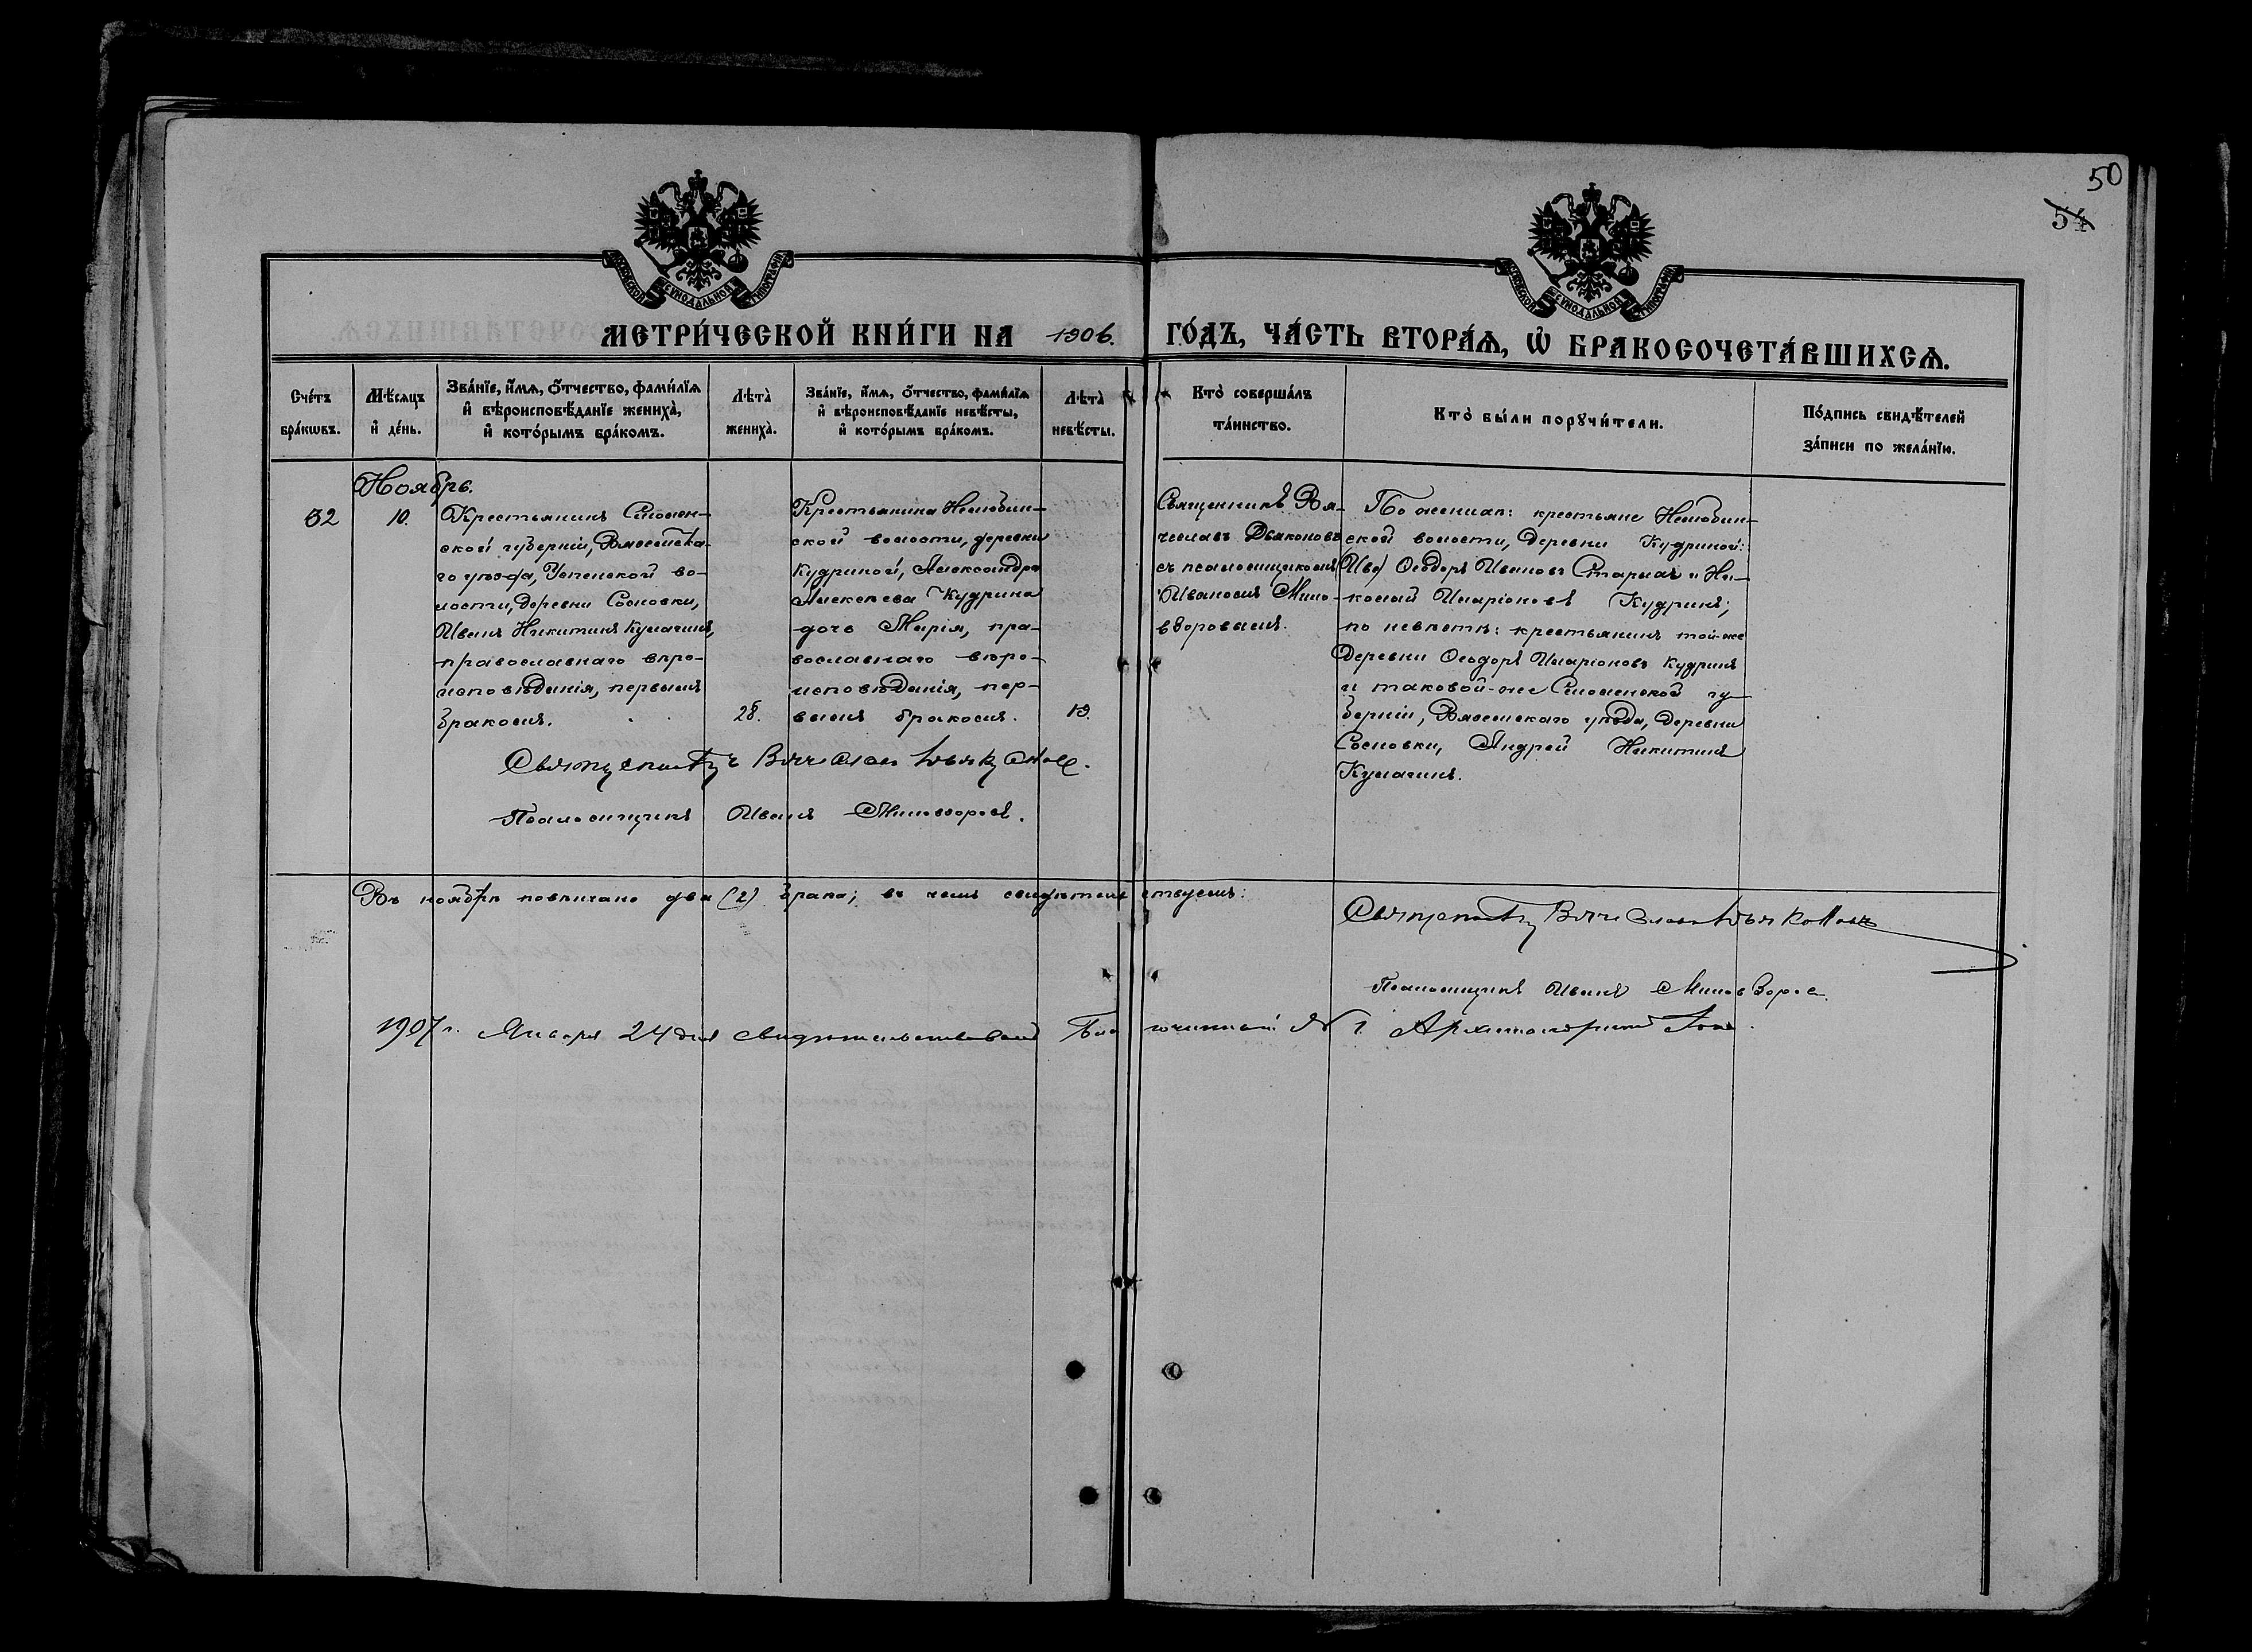 50
54
МОСКОВСКОЙ СѴНОДАЛЬНОЙ ТИПОГРАФІИ
МОСКОВСКОЙ СѴНОДАЛЬНОЙ ТИПОГРАФІИ
МЕТРИ́ЧЕСКОЙ КНИ́ГИ НА 1906. ГО́ДЪ, ЧА́СТЬ ВТОРА́Ѧ, Ѡ҆ БРАКОСОЧЕТА́ВШИХСѦ.
Сче́тъ бра́кѡвъ.
Мѣ́сяцъ и҆ де́нь.
Зва́нїе, и҆́мѧ, ѻ҆́тчество, фами́лїѧ
и҆ вѣроисповѣ́данїе жениха̀,
и҆ кото́рымъ бра́комъ.
Лѣта̀ жениха̀.
Зва́нїе, и҆́мѧ, ѻ҆́тчество, фами́лїѧ
и҆ вѣроисповѣ́данїе невѣ́сты,
и҆ кото́рымъ бра́комъ.
Лѣта̀ невѣ́сты.
Кто̀ соверша́лъ
та́инство.
Кто̀ бы́ли порꙋчи́тели.
По́дпись свидѣ́телей
за́писи по жела́нїю.
Ноябрь.
32
10.
Крестьянинъ Смолен-
ской губерніи, Вяземска-
го уѣзда, Успенской во-
лости, деревни Сосновки,
Иванъ Никитинъ Кулагинъ,
православнаго вѣро-
исповѣданія, первымъ
бракомъ.
28.
Крестьянина Нелюбин-
ской волости, деревни
Кудриной, Александра
Алексѣева Кудрина
дочь Марія, пра-
вославнаго вѣро-
исповѣданія, пер-
вымъ бракомъ.
19.
Священникъ Вя-
чеславъ Дьяконовъ
съ псаломщикомъ
Иваномъ Мило-
взоровымъ.
По женихѣ: крестьяне Нелюбин-
ской волости, деревни Кудриной:
Ѳеодоръ Ивановъ и Ни-
колай Иларіоновъ Кудринъ;
по невѣстѣ: крестьянинъ той-же
деревни Ѳеодоръ Иларіоновъ Кудринъ
и таковой-же Смоленской гу-
берніи, Вяземскаго уѣзда, деревни
Сосновки, Андрей Никитинъ
Кулагинъ.
Священникъ Вячеславъ Дьяконовъ.
Псаломщикъ Иванъ Миловзоровъ.
Въ ноябрѣ повѣнчано два (2) брака; въ чемъ свидѣтельствуемъ:
Священникъ Вячеславъ Дьяконовъ
Псаломщикъ Иванъ Миловзоровъ.
1907 г. Января 24 дня свидѣтельствовалъ Благочинный № 1. Архимандритъ Іона.